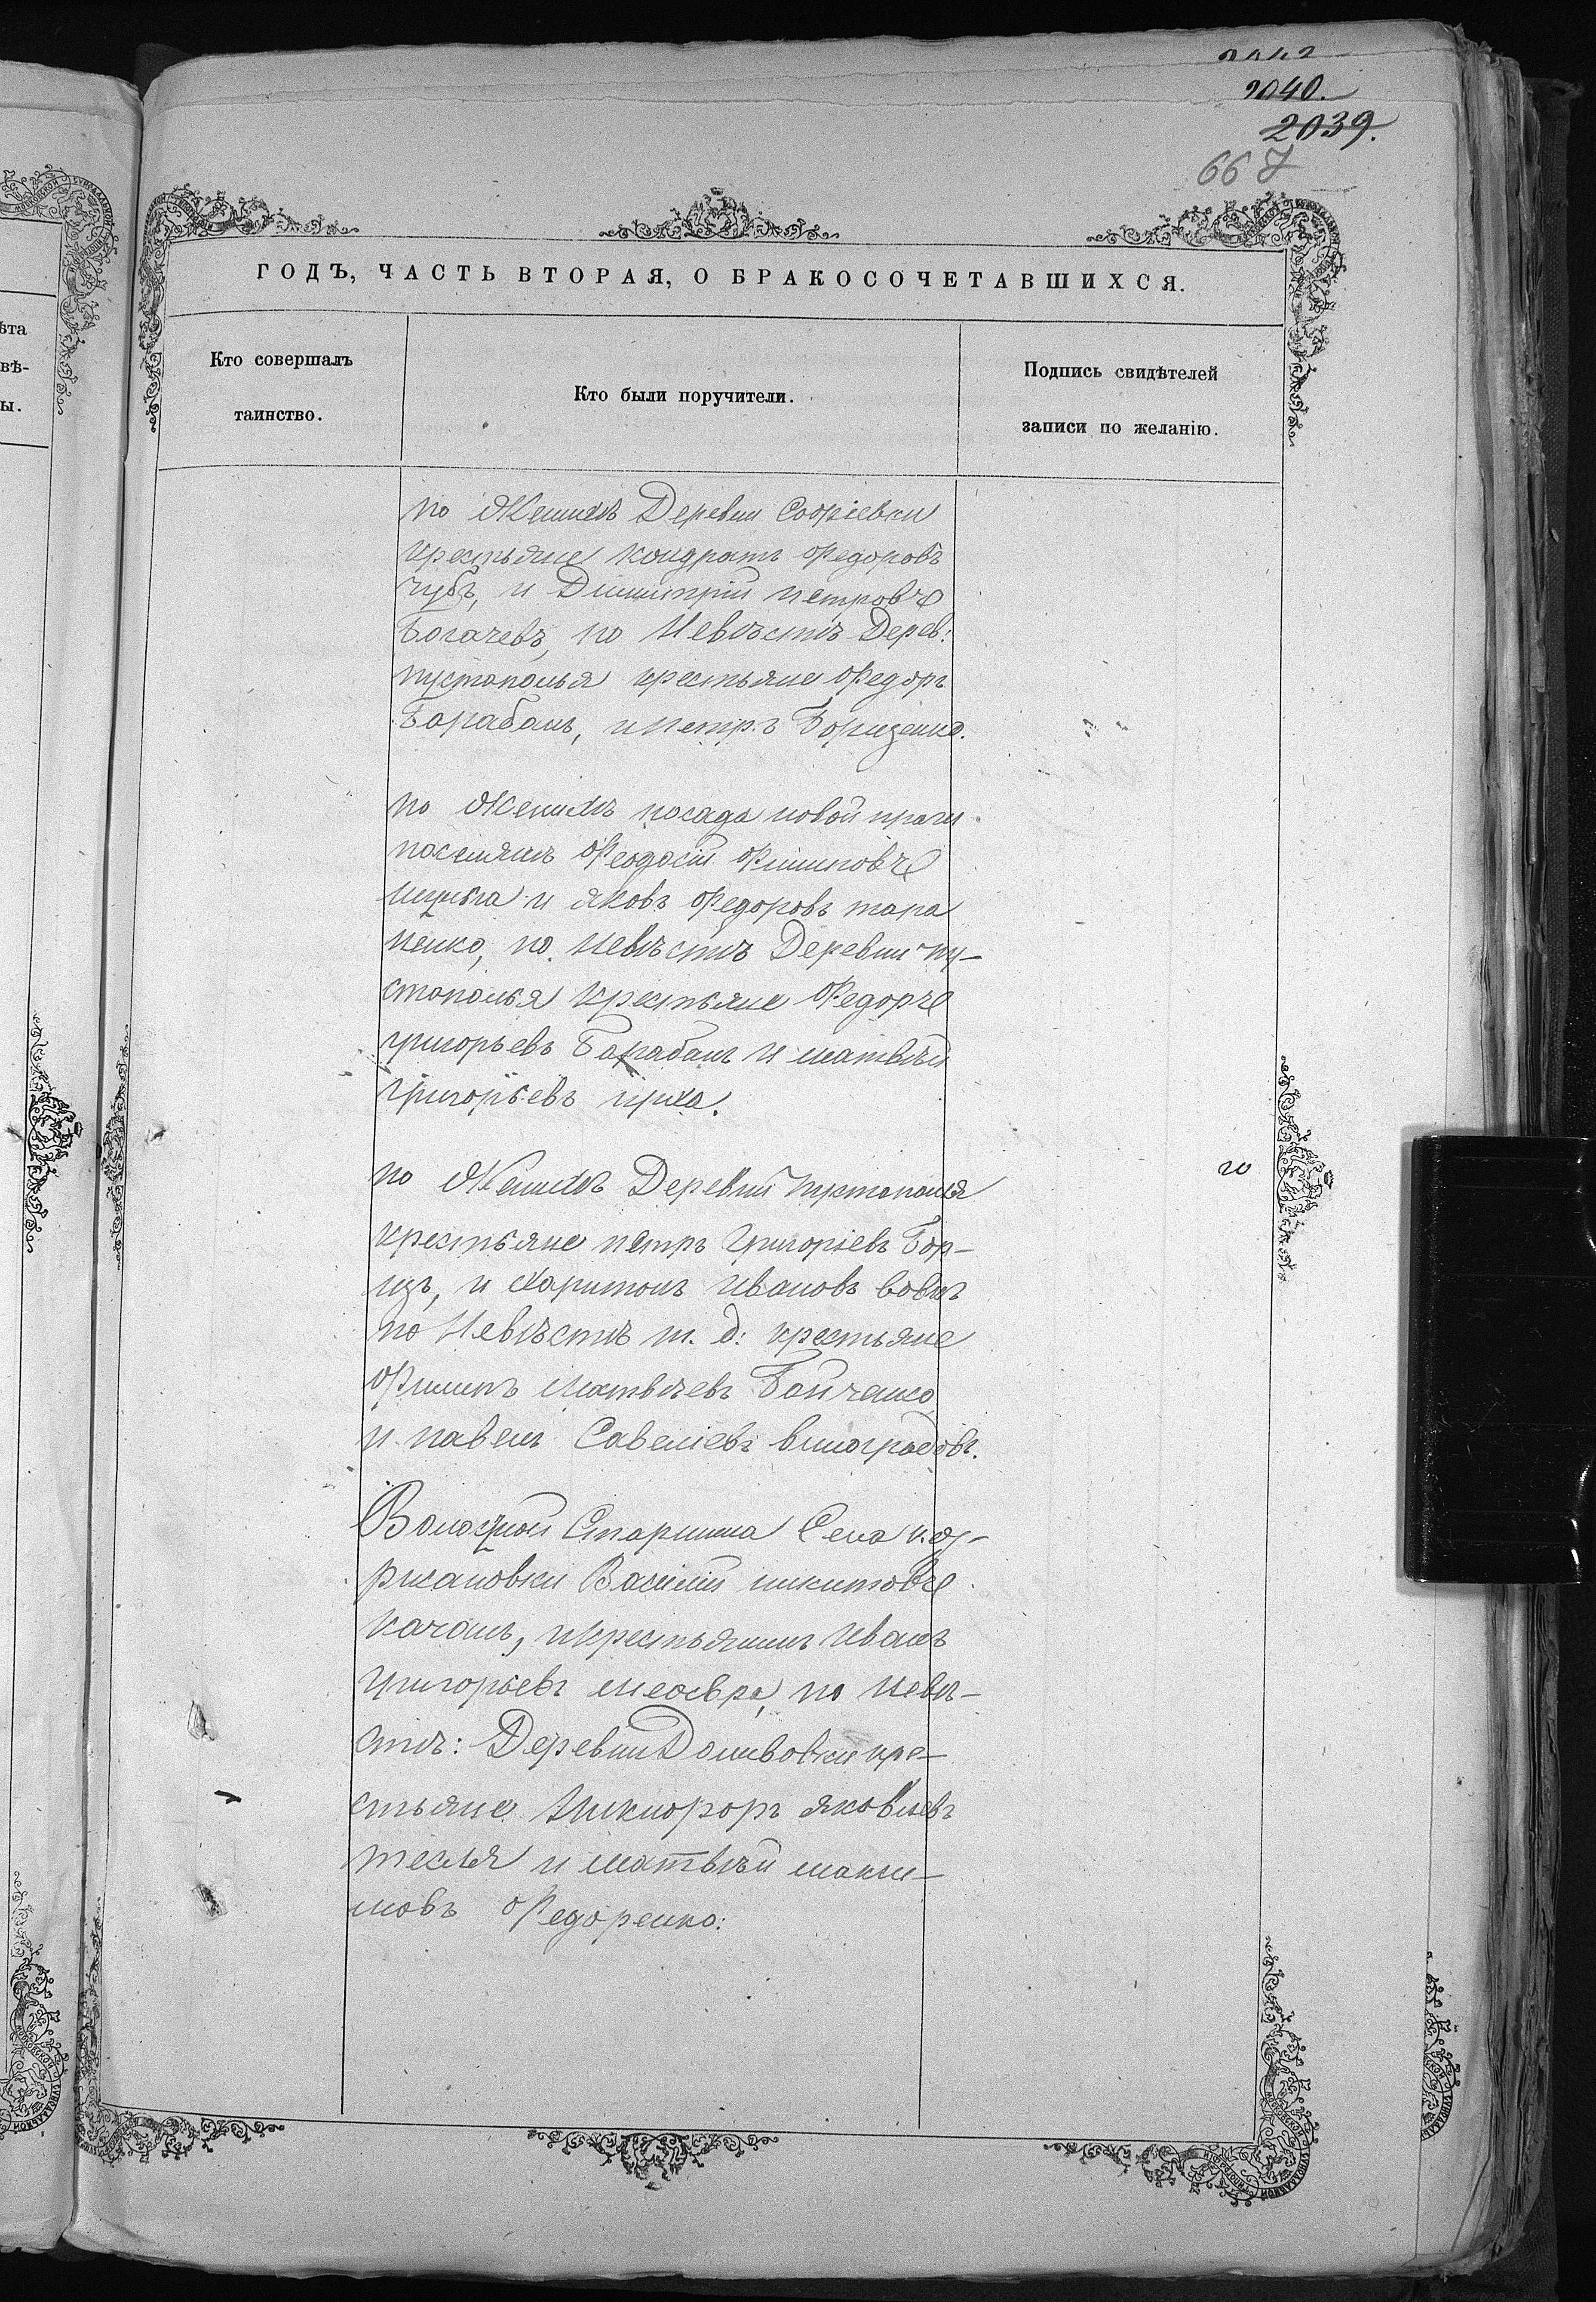 2040.
2039.
667
ГОДЪ, ЧАСТЬ ВТОРАЯ, О БРАКОСОЧЕТАВШИХСЯ.
Кто совершалъ
таинство.
Кто были поручители.
Подпись свидѣтелей
записи по желанію.
ѣта
вѣ-
ы.
по Женихѣ Деревни Софіевки
крестьяне кондратъ Федоровъ
чубъ, и Димитрій петровъ
Богачевъ, по Невѣстѣ Дерев:
пустополья крестьяне Федоръ
Барабашъ, и петръ Боризенко.
по Женихѣ посада новой праги
поселяне Феодосій Филиповъ
и яковъ Федоровъ тара
ненко, по Невѣстѣ Деревни пу-
стополья крестьяне Федоръ
григорьевъ Барабашъ и матвѣй
григорьевъ
по Женихѣ Деревни пустополья
крестьяне петръ григоріевъ Бор-
изъ, и Харитонъ Ивановъ вовкъ
по Невѣстѣ т. д: крестьяне
Филипъ матвѣевъ Байченко
и павелъ Савеліевъ виноградовъ.
Волостной Старшина Села ко-
ржановки Василій никитовъ
качанъ, и крестьянинъ Иванъ
григорьевъ по Невѣ-
стѣ: Деревни Доливовки кре-
стьяне Никифоръ яковлевъ
тесля и матвѣй макси-
мовъ Федоренко: